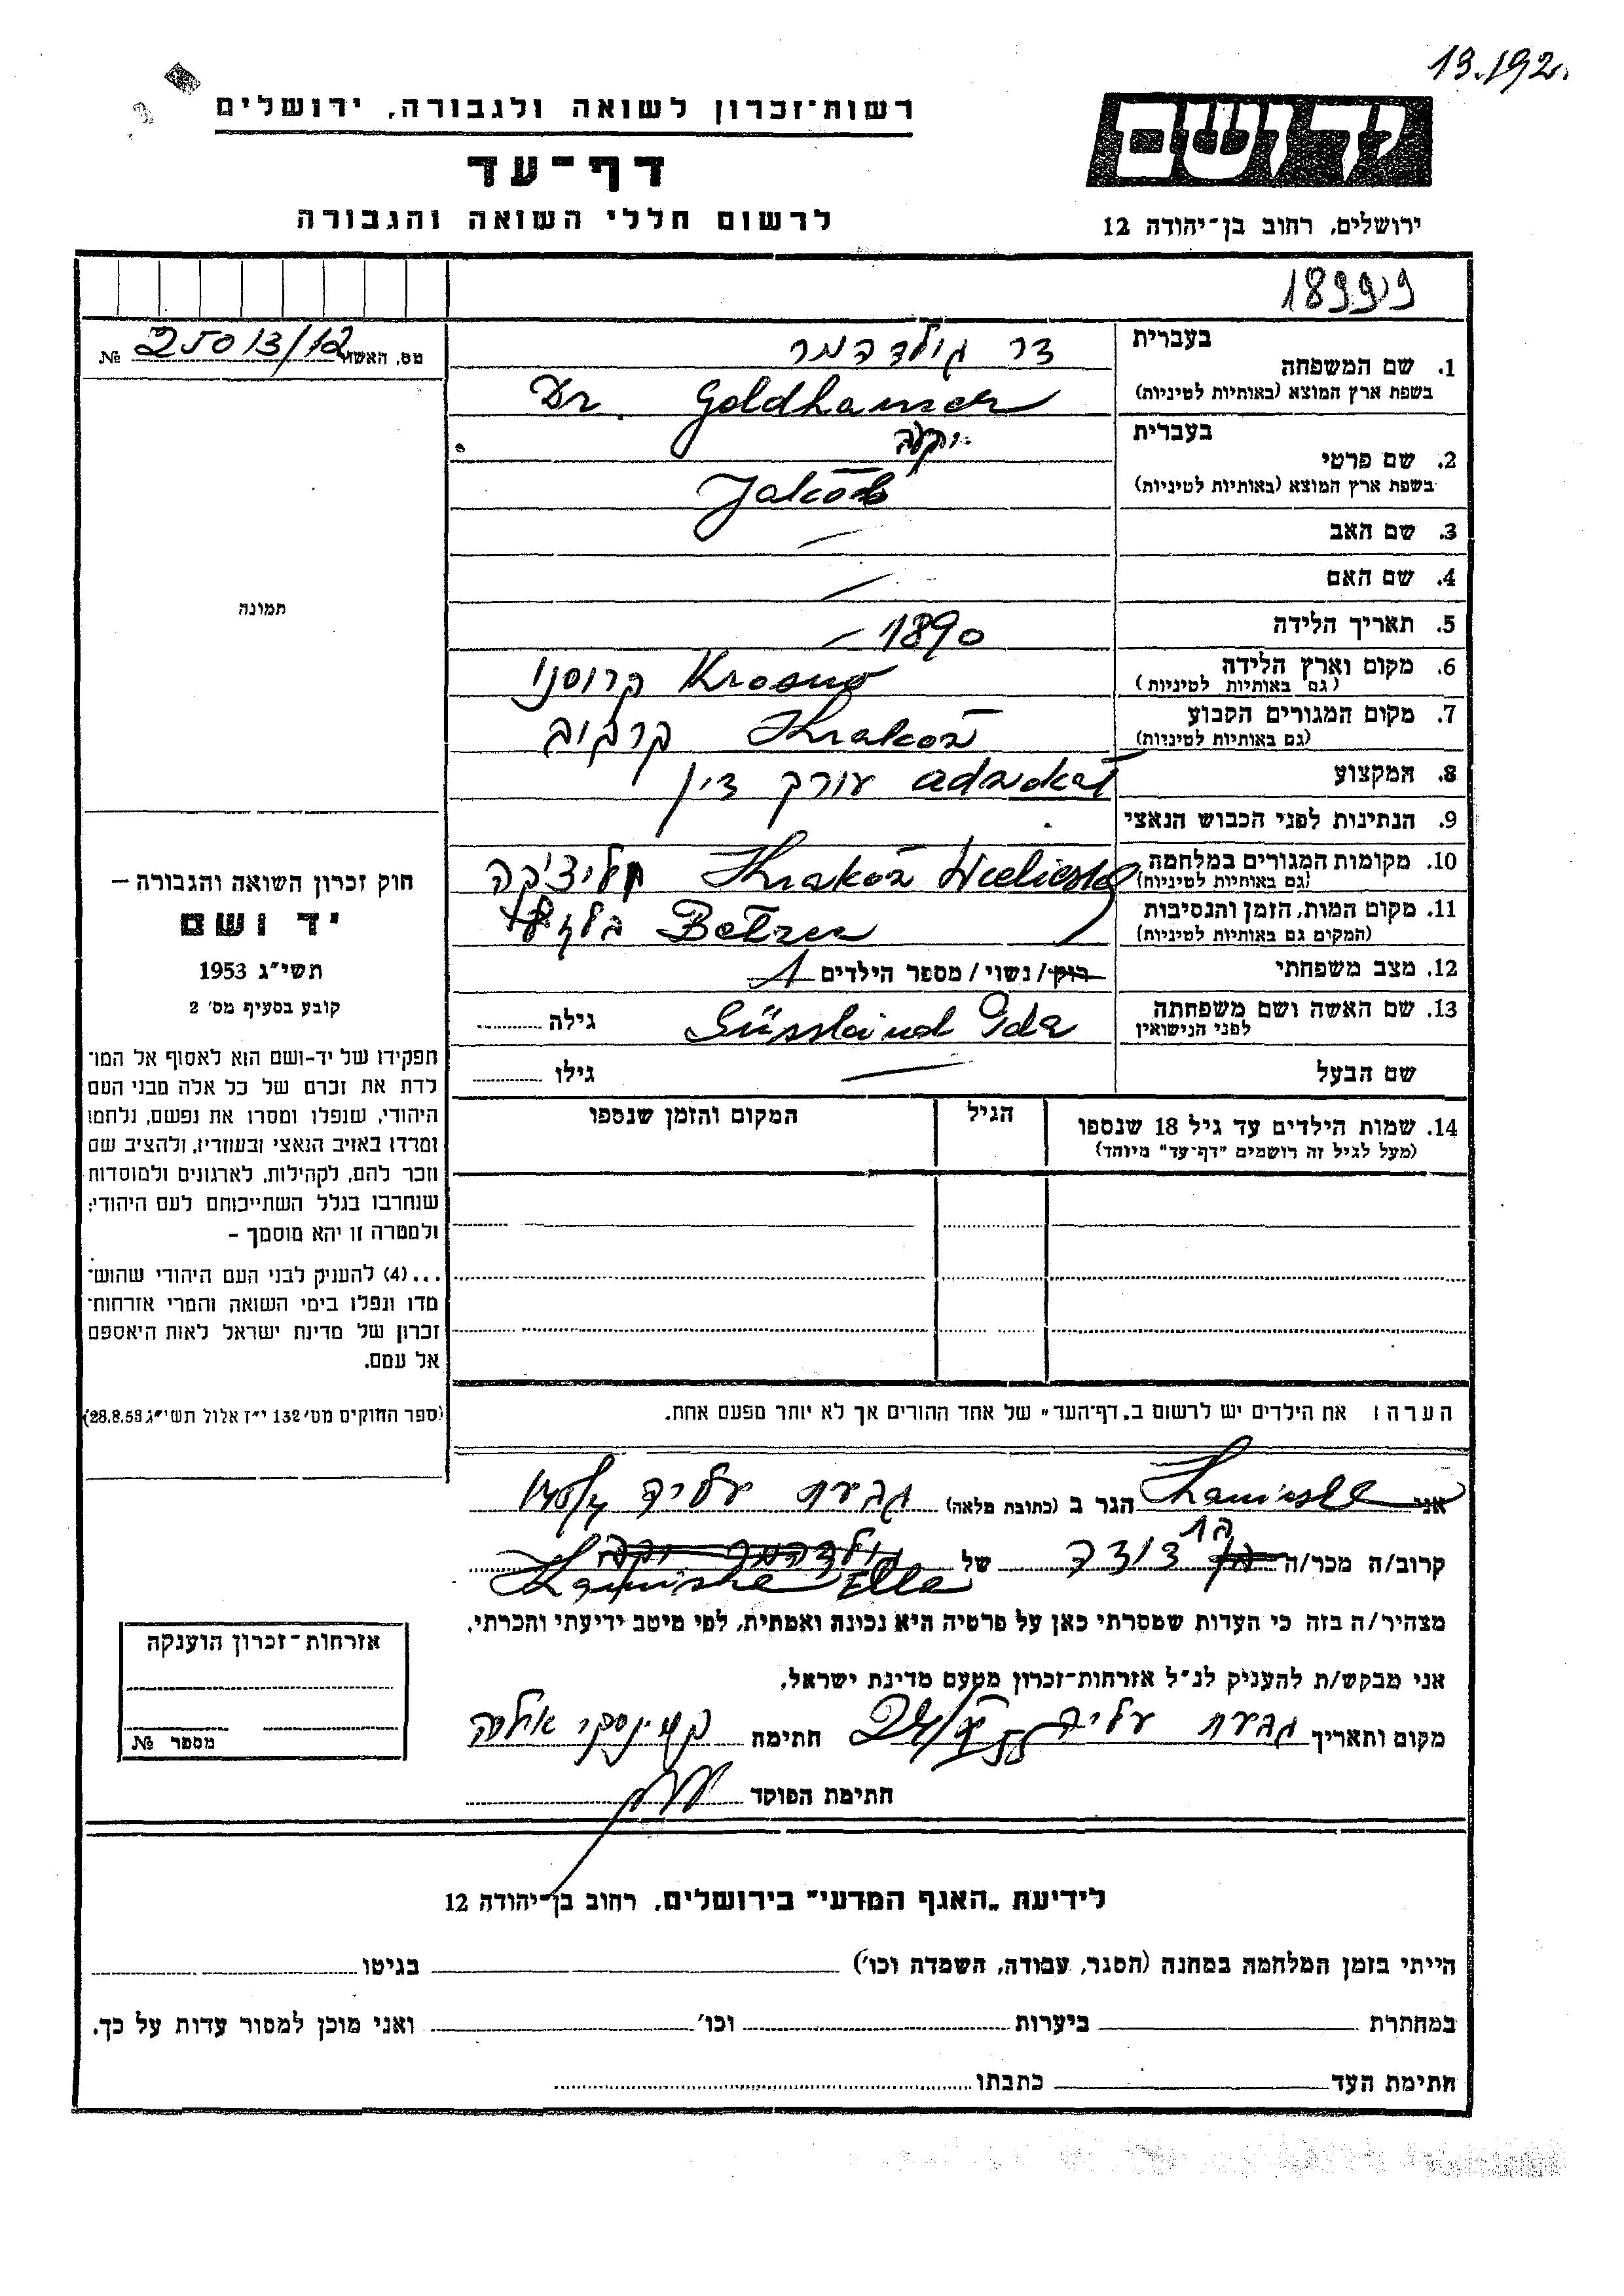 13.192
רשות־זכרון לשואה ולגבורה, ירושלים
יד ושם
דף־עד
לרשום חללי השואה והגבורה
ירושלים, רחוב בן־יהודה 12
18999
מס. האשור 25013/12 №
1. שם המשפחה
בעברית דר גולדהמר
בשפת ארץ המוצא (באותיות לטיניות) Dr. Goldhamer
2. שם פרטי
בעברית יעקב
בשפת ארץ המוצא (באותיות לטיניות) Jakób
3. שם האב —
4. שם האם —
5. תאריך הלידה 1890 —
6. מקום וארץ הלידה Krosno קרוסנו
(גם באותיות לטיניות)
7. מקום המגורים הקבוע Kraków קרקוב
(גם באותיות לטיניות)
8. המקצוע adwokat עורך דין
9. הנתינות לפני הכבוש הנאצי
10. מקומות המגורים במלחמה Kraków Wieliczka וליצ'קה
(גם באותיות לטיניות)
11. מקום המות, הזמן והנסיבות Bełzec
(המקום גם באותיות לטיניות)
12. מצב משפחתי רווק / נשוי / מספר הילדים 1
13. שם האשה ושם משפחתה Süsskind Ida גילה
לפני הנישואין
שם הבעל — גילו
14. שמות הילדים עד גיל 18 שנספו הגיל המקום והזמן שנספו
(מעל לגיל זה רושמים "דף־עד" מיוחד)
הערה: את הילדים יש לרשום ב„דף־העד" של אחד ההורים אך לא יותר מפעם אחת.
תמונה
חוק זכרון השואה והגבורה —
יד ושם
תשי"ג 1953
קובע בסעיף מס' 2
תפקידו של יד-ושם הוא לאסוף אל המו־
לדת את זכרם של כל אלה מבני העם
היהודי, שנפלו ומסרו את נפשם, נלחמו
ומרדו באויב הנאצי ובעוזריו, ולהציב שם
וזכר להם, לקהילות, לארגונים ולמוסדות
שנחרבו בגלל השתייכותם לעם היהודי;
ולמטרה זו יהא מוסמך –
...(4) להעניק לבני העם היהודי שהוש־
מדו ונפלו בימי השואה והמרי אזרחות־
זכרון של מדינת ישראל לאות היאספם
אל עמם.
(ספר החוקים מס' 132 י"ז אלול תשי"ג 28.8.53)
אני Kamińska הגר ב (כתובת מלאה) גבעת עליה
קרוב/ה מכר/ה דודה של גולדהמר יעקב
Kamińska Ella
מצהיר/ה בזה כי העדות שמסרתי כאן על פרטיה היא נכונה ואמתית, לפי מיטב ידיעתי והכרתי.
אני מבקש/ת להעניק לנ"ל אזרחות־זכרון מטעם מדינת ישראל.
מקום ותאריך גבעת עליה חתימה קמינסקי אלה
חתימת הפוקד
אזרחות־זכרון הוענקה
מספר №
לידיעת „האגף המדעי" בירושלים, רחוב בן־יהודה 12
הייתי בזמן המלחמה במחנה (הסגר, עבודה, השמדה וכו') בגיטו
במחתרת ביערות וכו' ואני מוכן למסור עדות על כך.
חתימת העד כתבתו